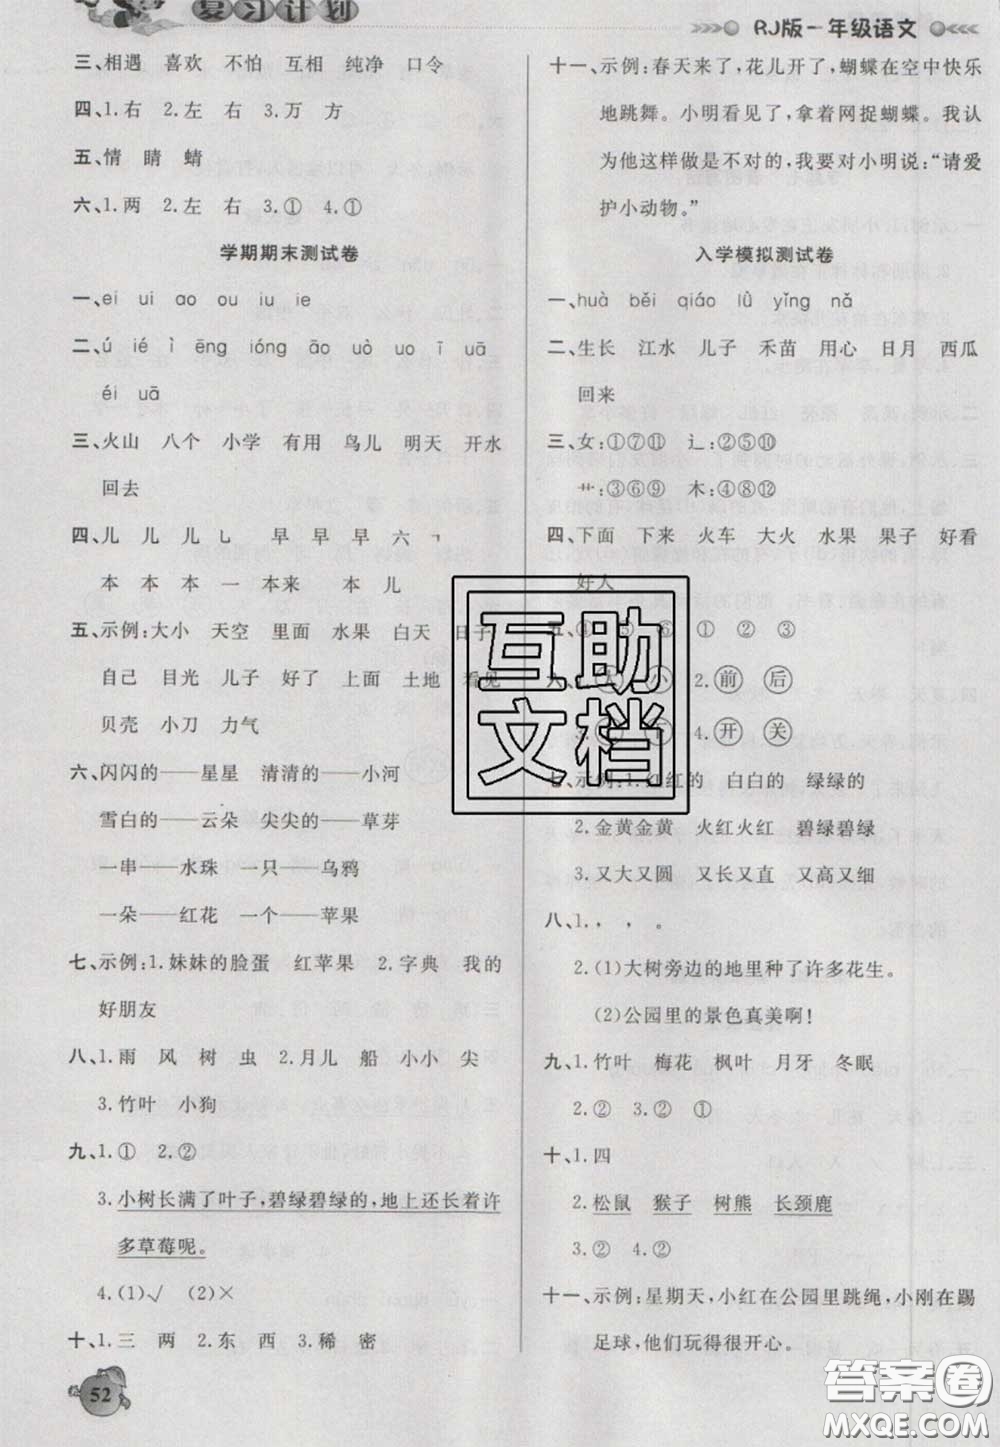 复习计划
RJ版一年级语文
三、相遇 喜欢 不怕 互相 纯净 口令
四、1.右 2.左 右 3.万 方
五、情 睛 蜻
六、1.两 2.左 右 3.① 4.①
学期期末测试卷
一、ei ui ao ou iu ie
二、ú ié ì ēng ióng āo uò uo ī uā
éi uā
三、火山 八个 小学 有用 鸟儿 明天 开水
回去
四、儿 儿 儿 乚 早 早 早 六
本 本 本 一 本来 本 儿
五、示例:大小 天空 里面 水果 白天 日子
自己 目光 儿子 好了 上面 土地 看见
贝壳 小刀 力气
六、闪闪的——星星 清清的——小河
雪白的——云朵 尖尖的——草芽
一串——水珠 一只——乌鸦
一朵——红花 一个——苹果
七、示例:1.妹妹的脸蛋 红苹果 2.字典 我的
好朋友
八、1.雨 风 树 虫 2.月儿 船 小小 尖
3.竹叶 小狗
九、1.① 2.②
3.小树长满了叶子,碧绿碧绿的,地上还长着许
多草莓呢。
4.(1)√ (2)×
十、1.三 两 2.东 西 3.稀 密
52
十一、示例:春天来了,花儿开了,蝴蝶在空中快乐
地跳舞。小明看见了,拿着网捉蝴蝶。我认
为他这样做是不对的,我要对小明说:“请爱
护小动物。”
入学模拟测试卷
一、huà běi qiáo lǜ yǐng nǎ
二、生长 江水 儿子 禾苗 用心 日月 西瓜
回来
三、女:①⑦⑪ 辶:②⑤⑩
艹:③⑥⑨ 木:④⑧⑫
四、下面 下来 火车 大火 水果 果子 好看
好人
五、④ ⑤ ⑥ ① ② ③
小 2.前 后
4.开 关
七、示例:1.红红的 白白的 绿绿的
2.金黄金黄 火红火红 碧绿碧绿
3.又大又圆 又长又直 又高又细
八、1., , 。
2.(1)大树旁边的地里种了许多花生。
(2)公园里的景色真美啊!
九、1.竹叶 梅花 枫叶 月牙 冬眠
2.② 3.② ①
十、1.四
2.松鼠 猴子 树熊 长颈鹿
3.② 4.②
十一、示例:星期天,小红在公园里跳绳,小刚在踢
足球,他们玩得很开心。
互助
文档
答案圈
MXQE.COM